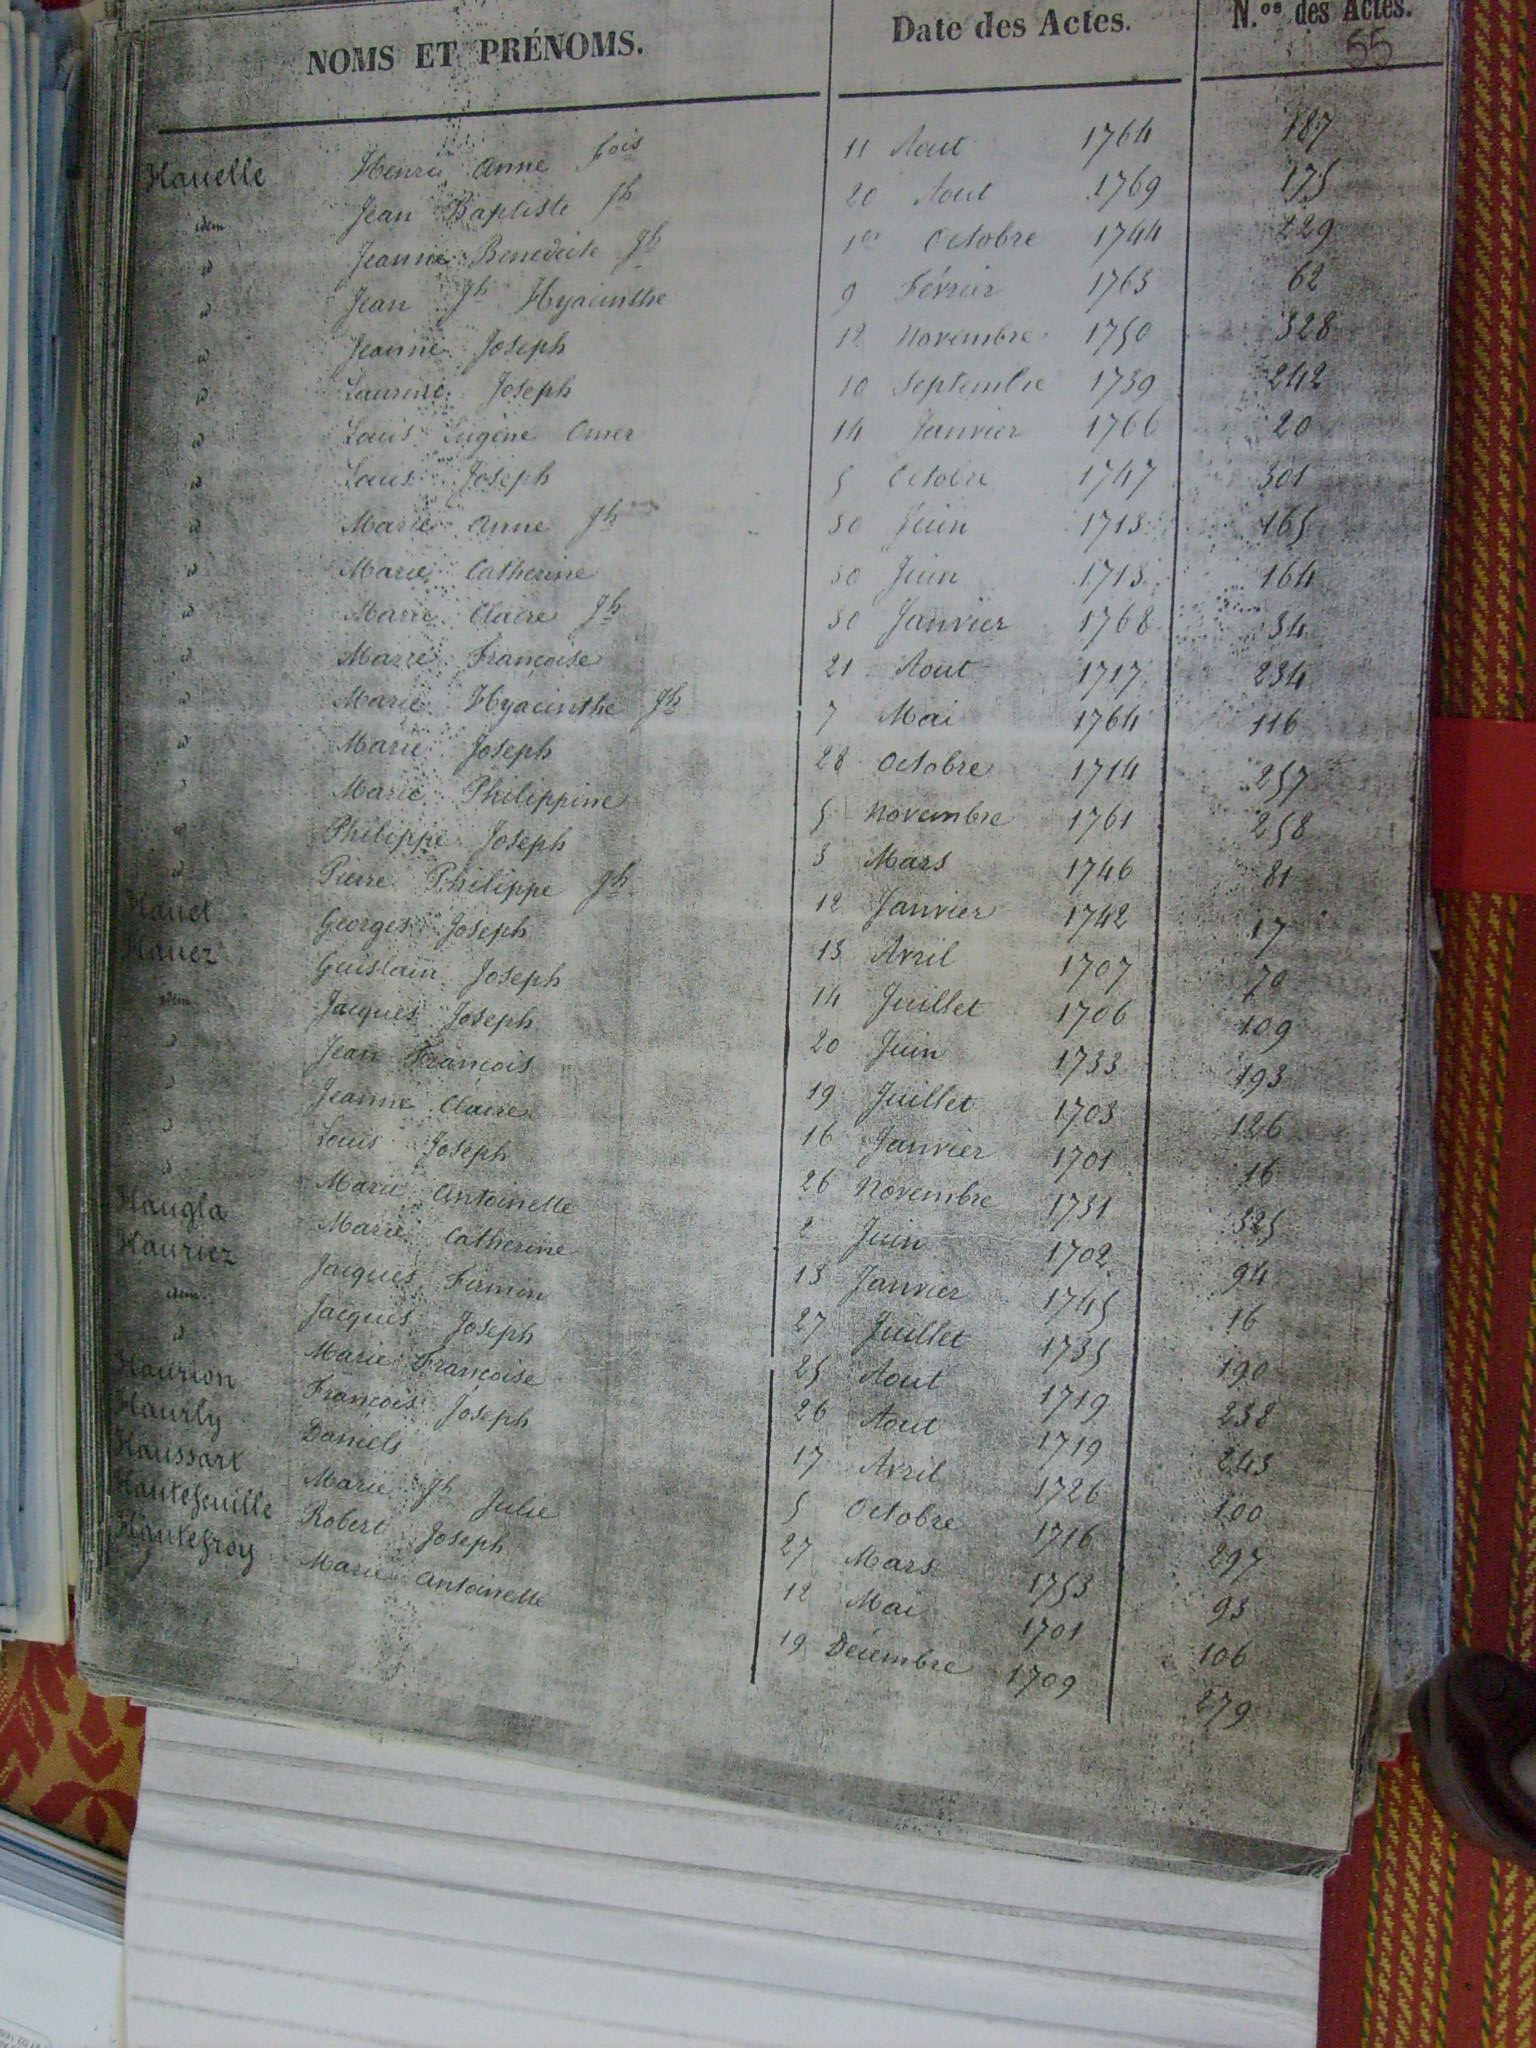 NOMS ET PRÉNOMS. Date des Actes. N.os des Actes.
55
Hauelle Henri Anne fois 11 Aout 1764 187
idem Jean Baptiste Jh 20 Aout 1769 175
id Jeanne Benedicte Jh 1er Octobre 1744 229
id Jean Jh Hyacinthe 9 Février 1763 62
id Jeanne Joseph 12 Novembre 1750 328
id Laurent Joseph 10 Septembre 1739 242
id Louis Eugène Omer 14 Janvier 1766 20
id Louis Joseph 5 Octobre 1747 301
id Marie Anne Jh 30 Juin 1713 165
id Marie Catherine 30 Juin 1713 164
id Marie Claire Jh 30 Janvier 1768 34
id Marie Francoise 21 Aout 1717 234
id Marie Hyacinthe Jh 7 Mai 1764 116
id Marie Joseph 28 Octobre 1714 257
id Marie Philippine 5 Novembre 1761 258
id Philippe Joseph 3 Mars 1746 81
id Pierre Philippe Jh 12 Janvier 1742 17
Hauet Georges Joseph 13 Avril 1707 70
Hauez Guislain Joseph 14 Juillet 1706 109
idem Jacques Joseph 20 Juin 1733 193
id Jean Francois 19 Juillet 1703 126
id Jeanne Claire 16 Janvier 1701 16
id Louis Joseph 26 Novembre 1731 325
id Marie Antoinette 2 Juin 1702 94
Haugla Marie Catherine 13 Janvier 1745 16
Hauriez Jacques Firmin 27 Juillet 1735 190
idem Jacques Joseph 25 Aout 1719 238
id Marie Francoise 26 Aout 1719 243
Haurion Francois Joseph 17 Avril 1726 100
Haurly Daniels 5 Octobre 1716 297
Haussart Marie Jh Julie 27 Mars 1753 93
Hautefeuille Robert Joseph 12 Mai 1701 106
Hautefroy Marie Antoinette 19 Décembre 1709 279